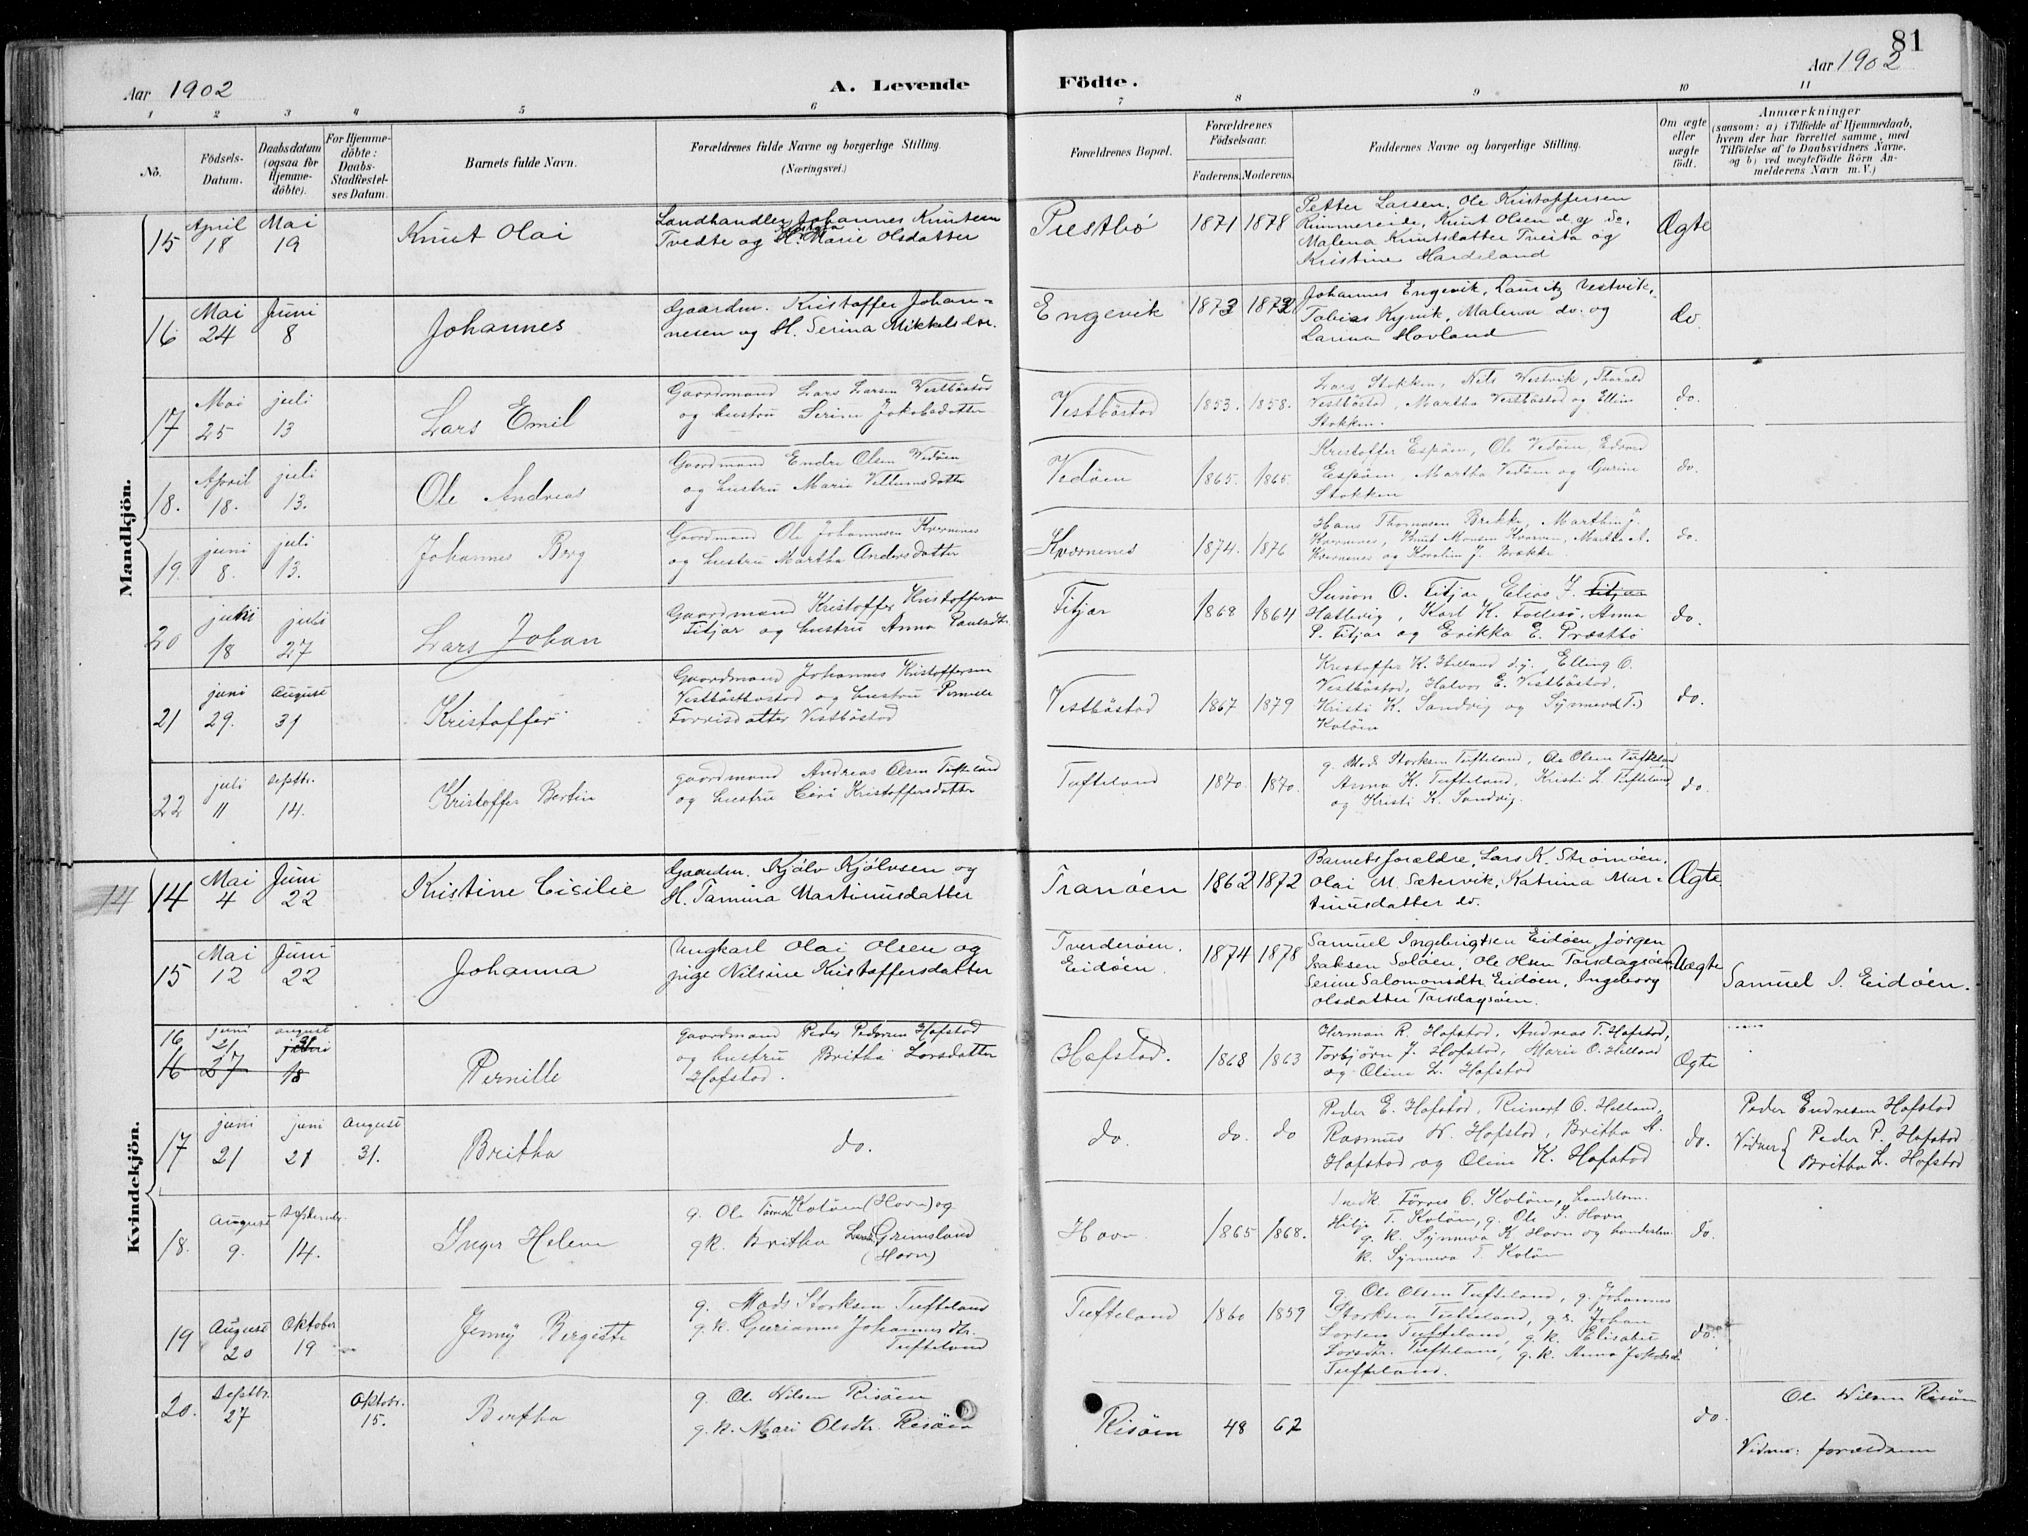 81
Aar 1902
A. Levende
Födte.
Aar 1902
1 2 3 4 5 6 7 8 9 10 11
No.
Födsels-
Datum.
Daabsdatum
(ogsaa for
Hjemme-
döbte).
For Hjemme-
döbte:
Daabs-
Stadfæstel-
ses Datum.
Barnets fulde Navn.
Forældrenes fulde Navne og borgerlige Stilling.
(Næringsvei.)
Forældrenes Bopæl.
Forældrenes
Födselsaar.
Faderens. Moderens.
Faddernes Navne og borgerlige Stilling.
Om ægte
eller
uægte
födt.
Anmærkninger
(saasom: a) i Tilfælde af Hjemmedaab,
hvem der har forrettet samme, med
Tilföielse af to Daabsvidners Navne.
og b) ved uægtefödte Börn An-
melderens Navn m. V.)
Mandkjön.
15
April
18
Mai
19
Knut Olai
Landhandler Johannes Knutsen
Tvedte og H. Marie Olsdatter
Prestbö
1871 1878
Petter Larsen, Ole Kristoffersen
Rimmereide, Knut Olsen d. y. do,
Malena Knutsdatter Tveita og
Kristine Hardeland
Ægte
16
Mai
24
Juni
8
Johannes
Gaardm. Kristoffer Johan-
nesen og H. Serina Mikkelsdtr.
Engevik
1873
Johannes Engevik, Lauritz Vestvik,
Tobias Kyvik, Malena do. og
Launa Hovland
do.
17
Mai
25
juli
13
Lars Emil
Gaardmand Lars Larsen Vestböstad
og hustru Serine Jakobsdatter
Vestböstad
1853. 1858.
Lars Stokken, Nils Westvik, Thorald
Vestböstad, Martha Vestböstad og Ellen
Stokken.
do.
18.
April
18.
juli
13.
Ole Andreas
Gaardmand Endre Olsen Vedöen
og hustru Marie Villumsdatter
Vedöen
1865. 1865.
Kristoffer Espöen, Ole Vedöen, Edvard
Espöen, Martha Vedöen og Gurine
Stokken
do.
19.
juni
8.
juli
13.
Johannes Berg
Gaardmand Ole Johannesen Kvernenes
og hustru Martha Andersdatter
Kvernenes
1874. 1876
Hans Thomasen Brekke, Marthin J.
Kvernenes, Knut Monsen Kvarven, Martha A.
Kvernenes og Karoline J. Brække
do.
20
18
juli
27
Lars Johan
Gaardmand Kristoffer Kristoffersen
Fitjar og hustru Anna Paulsdtr.
Fitjar
1868 1864
Simon O. Fitjar, Elias J. Fitjar
Hatlevig, Karl K. Foldesö, Anna
P. Fitjar og Erikka E. Præstbö
do.
21
juni
29.
August
31
Kristoffer
Gaardmand Johannes Kristoffersen
Vestböstad og hustru Pernele
Torrisdatter Vestböstad
Vestböstad
1867 1879
Kristoffer K. Helland d.y. Elling O.
Vestböstad, Halvor E. Vestböstad,
Kristi K. Sandvig og Synneva T.
Kolöen
do.
22
juli
11
Septbr.
14.
Kristoffer Bertin
gaardmand Andreas Olsen Tufteland
og hustru Siri Kristoffersdatter
Tufteland
1870. 1870.
g. Mads Storksen Tufteland, Ole Olsen Tufteland
Anna K. Tufteland, Kristi L. Tufteland
og Kristi K. Sandvig.
do.
Kvindekjön.
14 14
Mai
4
Juni
22
Kristine Cisilie
Gaardm. Kjölv Kjölvsen og
H. Tamina Martinusdatter
Tranöen
1862 1872
Barnets forældre, Lars K. Strömöen,
Olai M. Sætervik, Katrina Mar-
tinusdatter do.
Ægte
15
Mai
12
Juni
22
Johanna
Ungkarl Olai Olsen og
pige Nilsine Kristoffersdatter
Tverderöen.
Eidöen.
1874 1878
Samuel Ingebrigtsen Eidöen, Jörgen
Isaksen Solöen, Ole Olsen Torsdagsöen,
Serine Salomonsdtr. Eidöen, Ingeborg
Olsdatter Torsdagsöen.
Uægte
Samuel I. Eidöen.
16
juni
21
august
16 27
18
Pernille
gaardmand Peder Pedersen Hofstad
og hustru Britha Larsdatter
Hofstad.
Hofstad.
1868 1863
Herman R. Hofstad, Andreas T. Hofstad,
Torbjörn J. Hofstad, Marie O. Helland
og Oline L. Hofstad
Ægte
17
juni
21
juni
21
August
31.
Britha
do.
do.
do. do
Peder E. Hofstad, Reinert O. Helland,
Rasmus N. Hofstad, Britha A.
Hofstad og Oline K. Hofstad
do.
Peder Endresen Hofstad
Vidner { Peder P. Hofstad
Britha L. Hofstad
18.
August
9.
September
14.
Inger Helene
g. Ole Kolöen (Havn) og
gk. Britha Grimsland
(Havn)
Havn
1865 1868.
Törris O. Kolöen, handelsm.
Hilje T. Kolöen, g. Ole I. Havn
g. k. Synneva K Havn og handelsm.
k. Synneva T. Kolöen
do.
19
August
20
Oktober
19
Jenny Bergitte
g. Mads Storksen Tufteland
g.k. Gurianne Johannesdtr.
Tufteland
Tufteland
1860 1859
g. Ole Olsen Tufteland, g. Johannes
Storksen Tufteland, g. s. Johan
Larsen Tufteland, g.k. Elisabet
Larsdtr. Tufteland, g.k. Anna
Tufteland.
do.
20.
Septbr.
27
Oktobr.
15.
Bertha
g. Ole Nilsen Risöen
g.k. Mari Olsdtr. Risöen
Risöen
48 62
do.
Ole Nilsen Risöen
Vidner: forældrene